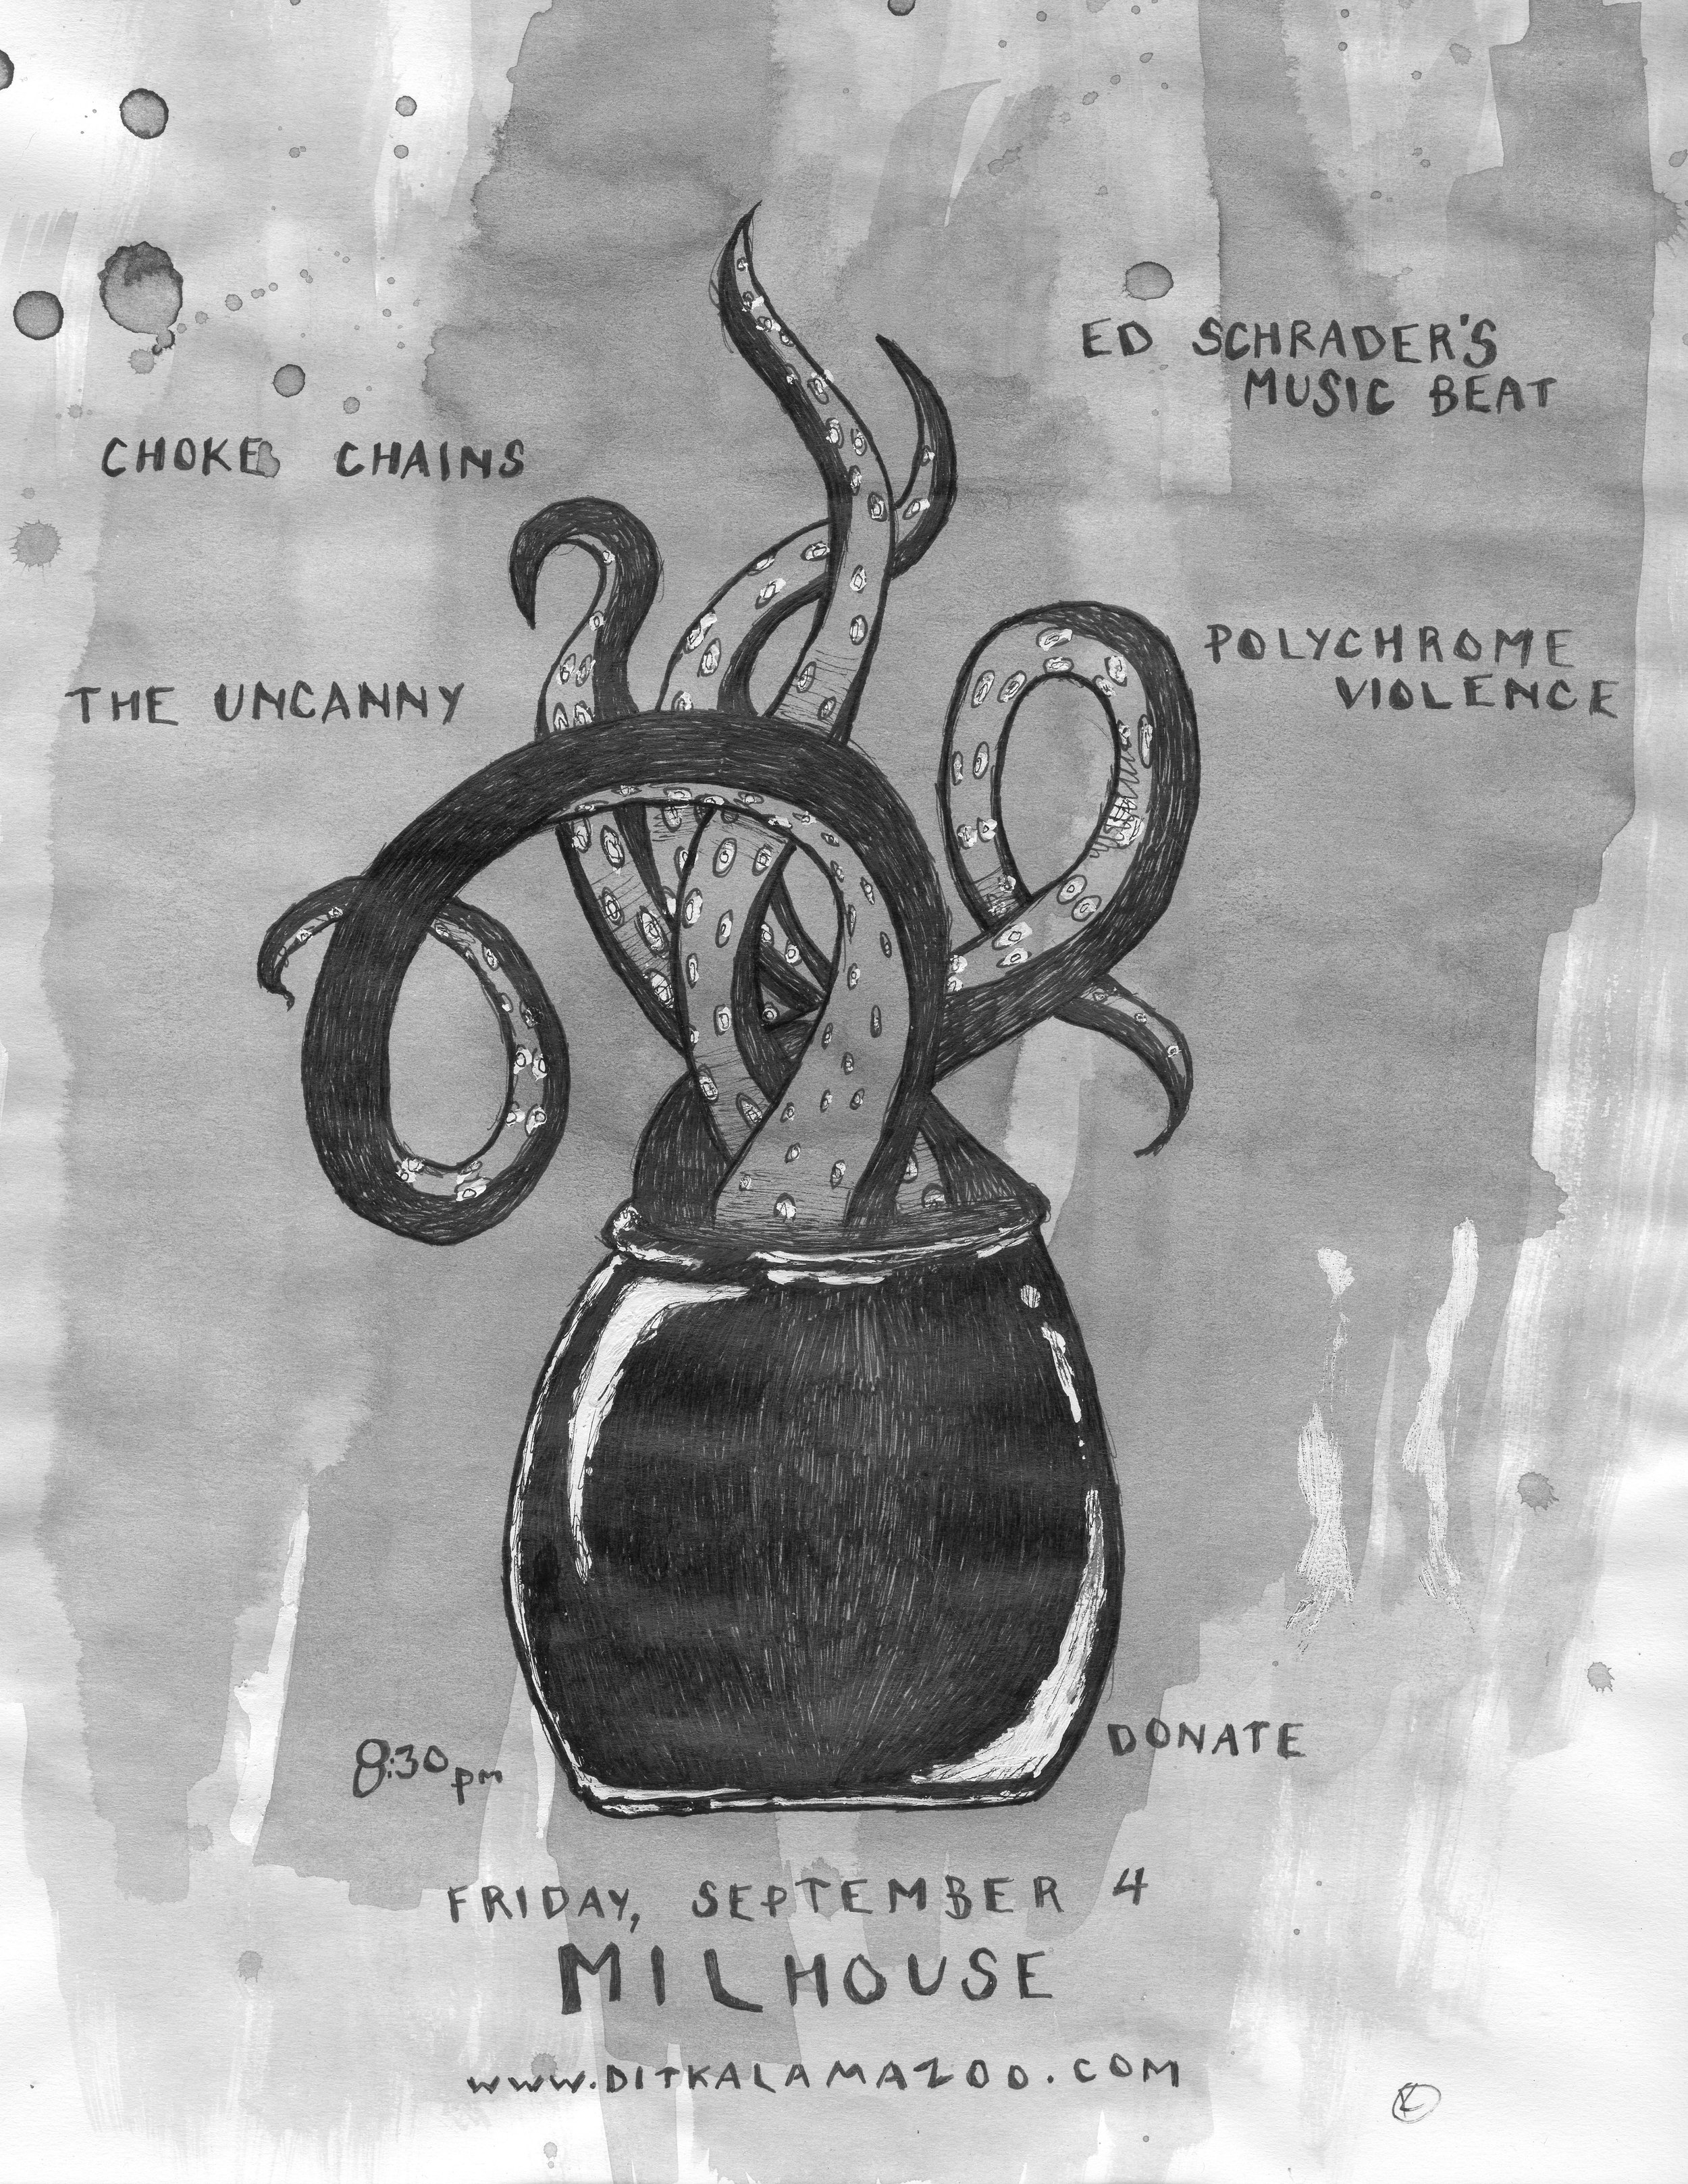 ED SCHRADER'S
MUSIC BEAT
CHOKE CHAINS
POLYCHROME
VIOLENCE
THE UNCANNY
8:30pm
DONATE
FRIDAY, SEPTEMBER 4
MILHOUSE
www.DITKALAMAZOO.COM